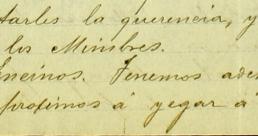 tarles la querencia, y
los Mimbres.
Encinos. Tenemos ade
proximos á yegar á